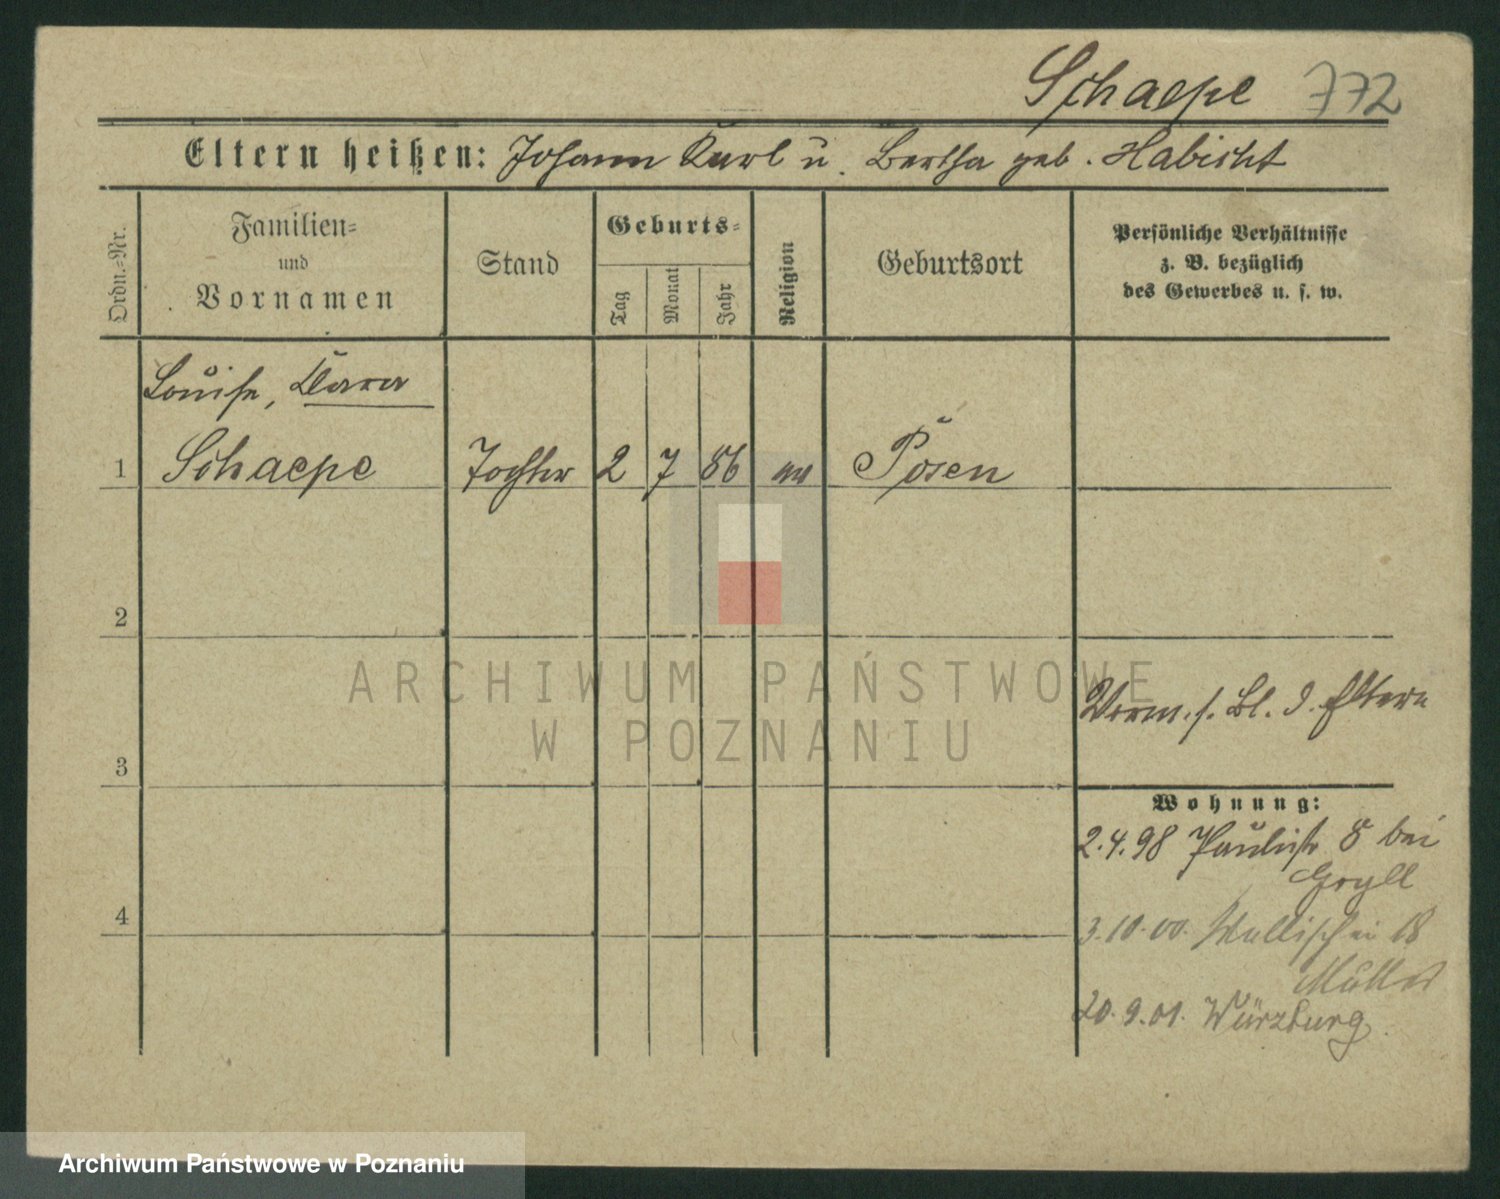 Schaepe 772
Eltern heißen: Johann Karl u. Bertha geb. Habicht
Ordn.-Nr.
Familien-
und
Vornamen
Stand
Geburts-
Tag
Monat
Jahr
Religion
Geburtsort
Persönliche Verhältnisse
z. B. bezüglich
des Gewerbes u. s. w.
Louise, Clara
1 Schaepe Tochter 2 7 86 ev Posen
2
ARCHIWUM PAŃSTWOWE
W POZNANIU
Vorm. s. Bl. d. Eltern
3
Wohnung:
2.4.98 Paulistr 8 bei
Gryll
4
3.10.00. Wallischei 18
Müller
20.9.01. Würzburg.
Archiwum Państwowe w Poznaniu